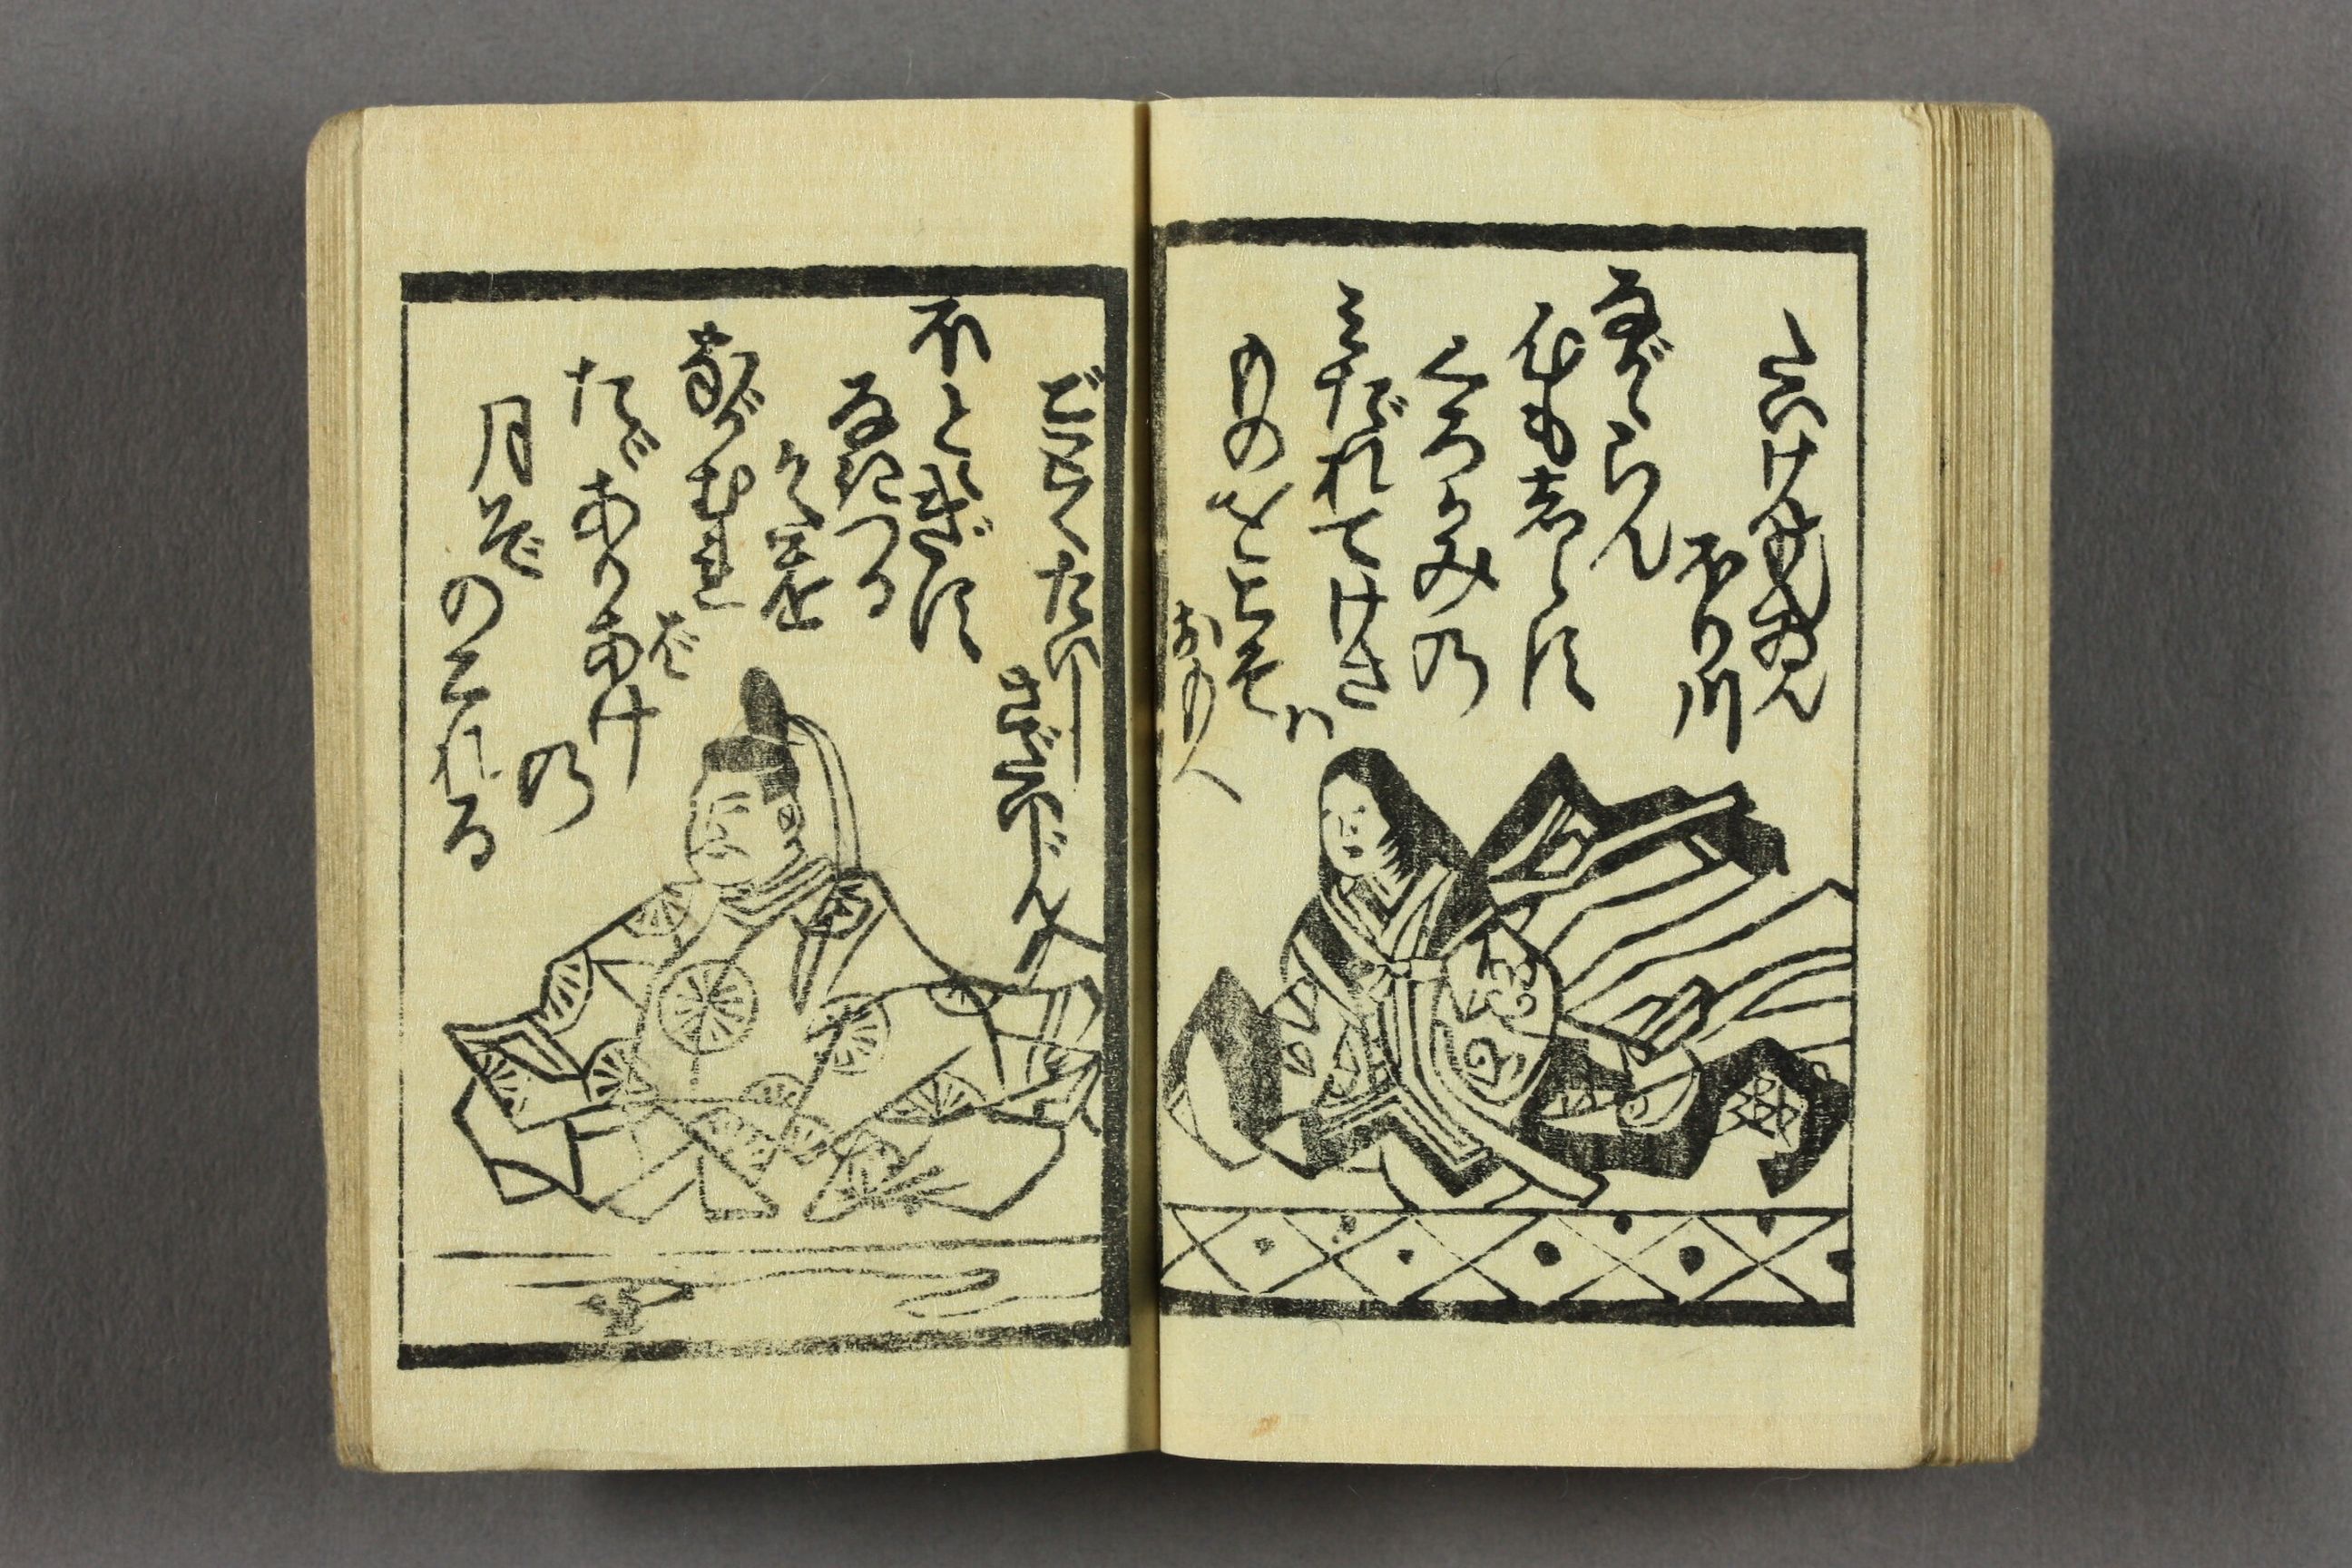 たいけんもんゐん
ほり川
ながゝらん
心も志らす
くろかみの
みだれてけさ
は
ものをこそ
おもへ
ごとくだいし
さだいじん
ほとゝぎす
なきつる
かたを
ながむれ
ば
たゞありあけ
の
月ぞ
のこれる